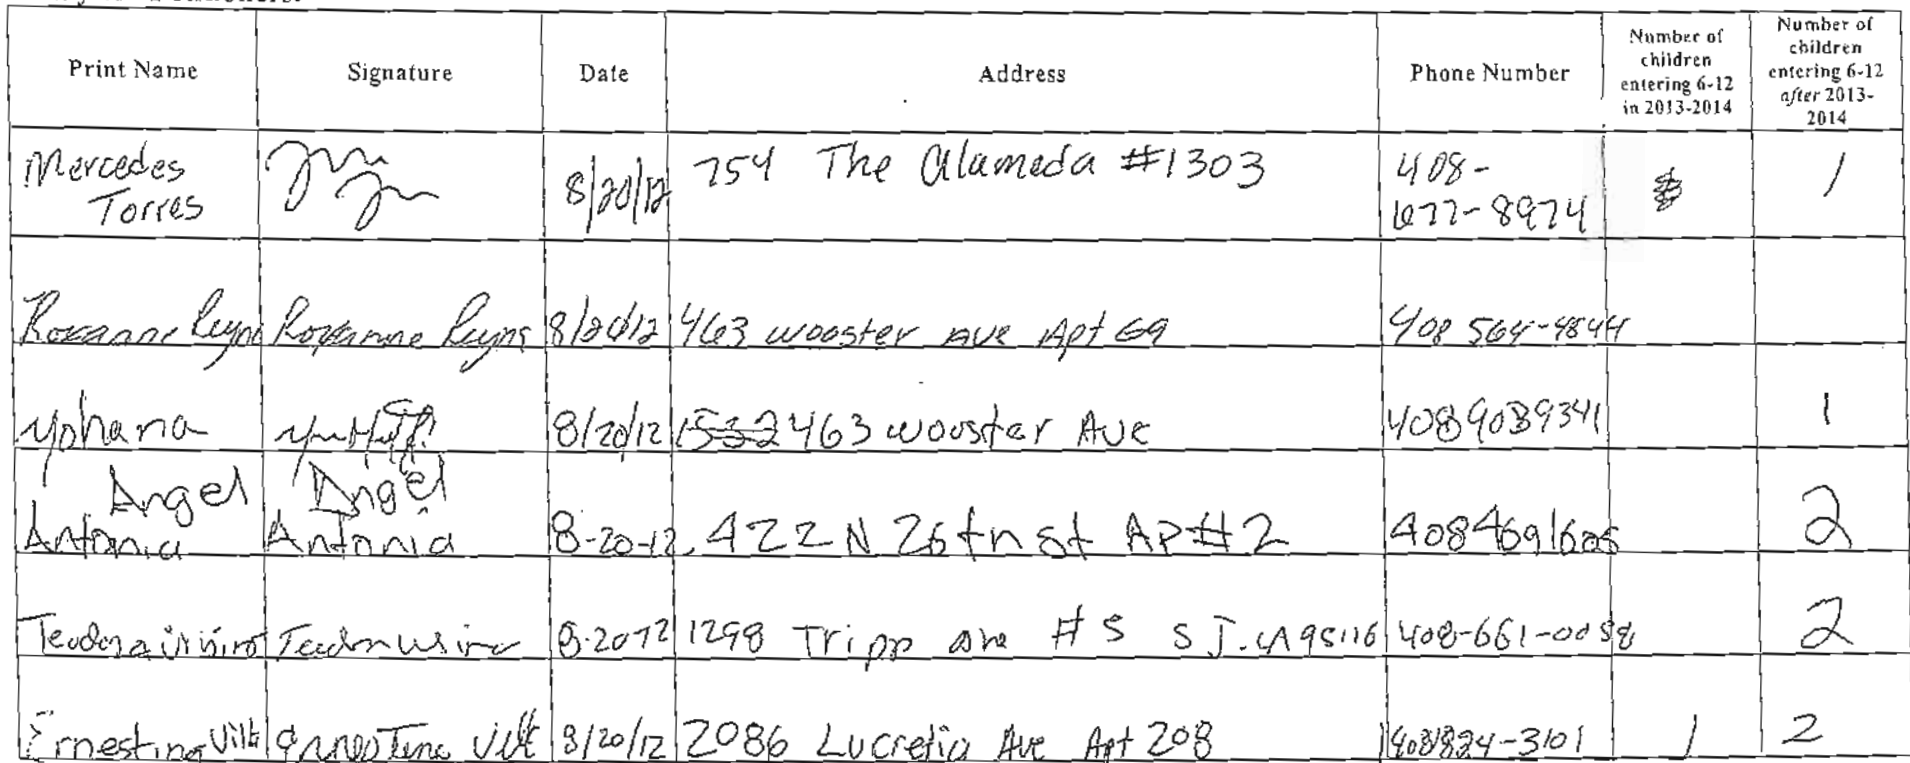 Print Name Signature Date Address Phone Number Number of children entering 6-12 in 2013-2014 Number of children entering 6-12 after 2013-2014
Mercedes Torres 8/20/12 754 The Alameda #1303 408-677-8974 1
Roxanne Roxanne 8/20/12 463 wooster ave Apt 408 564-4844
Yohana 8/20/12 463 wooster Ave 4089039341 1
Angel Antonia Angel Antonia 8-20-12 422 N 26 tn st AP#2 2
8-2012 1298 Tripp ave #5 S J. CA 95116 2
Ernestina 8/20/12 2086 Lucretia Ave Apt 208 408824-3101 1 2